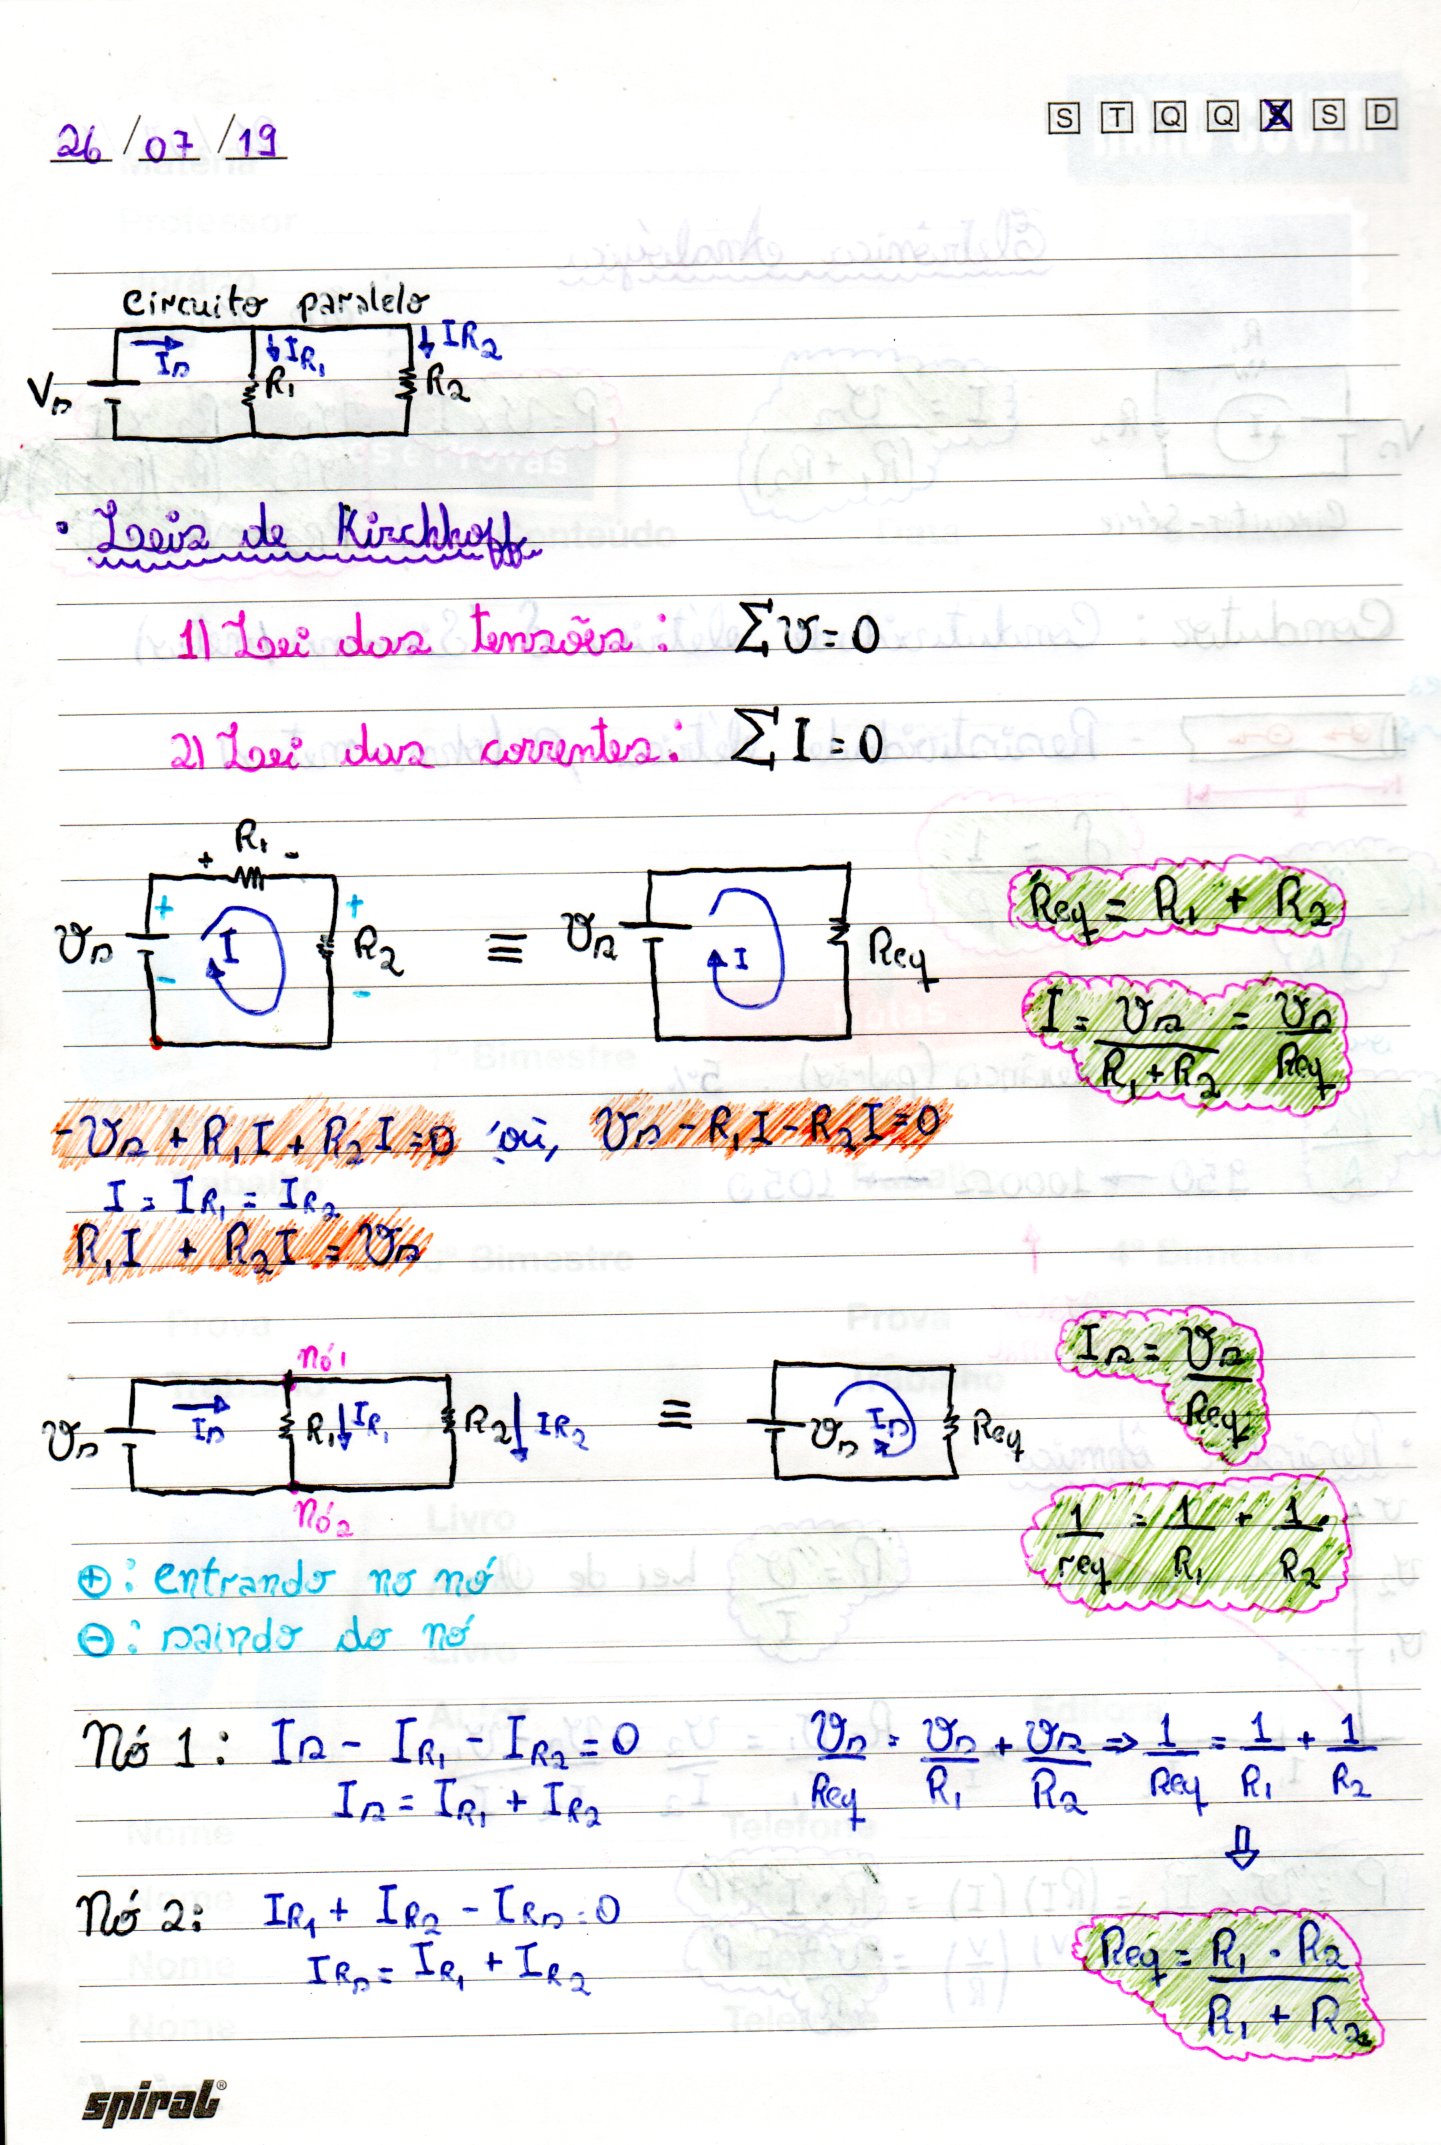 26/07/19
S T Q Q S S D
Circuito paralelo
Vs Is IR1 R1 IR2 R2
• Leis de Kirchhoff
1) Lei das tensões: ∑v=0
2) Lei das correntes: ∑I=0
R1
+ -
vs + - I + - R2 ≡ vs I Req
Req = R1 + R2
I = vs/(R1+R2) = vs/Req
-vs + R1I + R2I = 0 ou, vs - R1I - R2I = 0
I = IR1 = IR2
R1I + R2I = vs
nó1
vs Is R1 IR1 R2 IR2 ≡ vs Is Req
nó2
Is = vs/Req
1/req = 1/R1 + 1/R2
⊕: entrando no nó
⊖: saindo do nó
Nó 1: Is - IR1 - IR2 = 0
Is = IR1 + IR2
vs/Req = vs/R1 + vs/R2 ⇒ 1/Req = 1/R1 + 1/R2
⇓
Nó 2: IR1 + IR2 - IRs = 0
IRs = IR1 + IR2
Req = R1 · R2/(R1 + R2)
spiral®